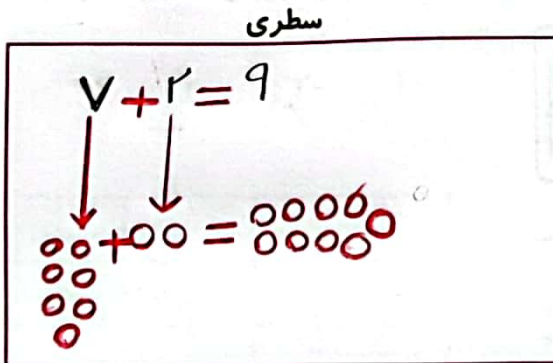 سطری
۷ + ۲ = ۹
+ =